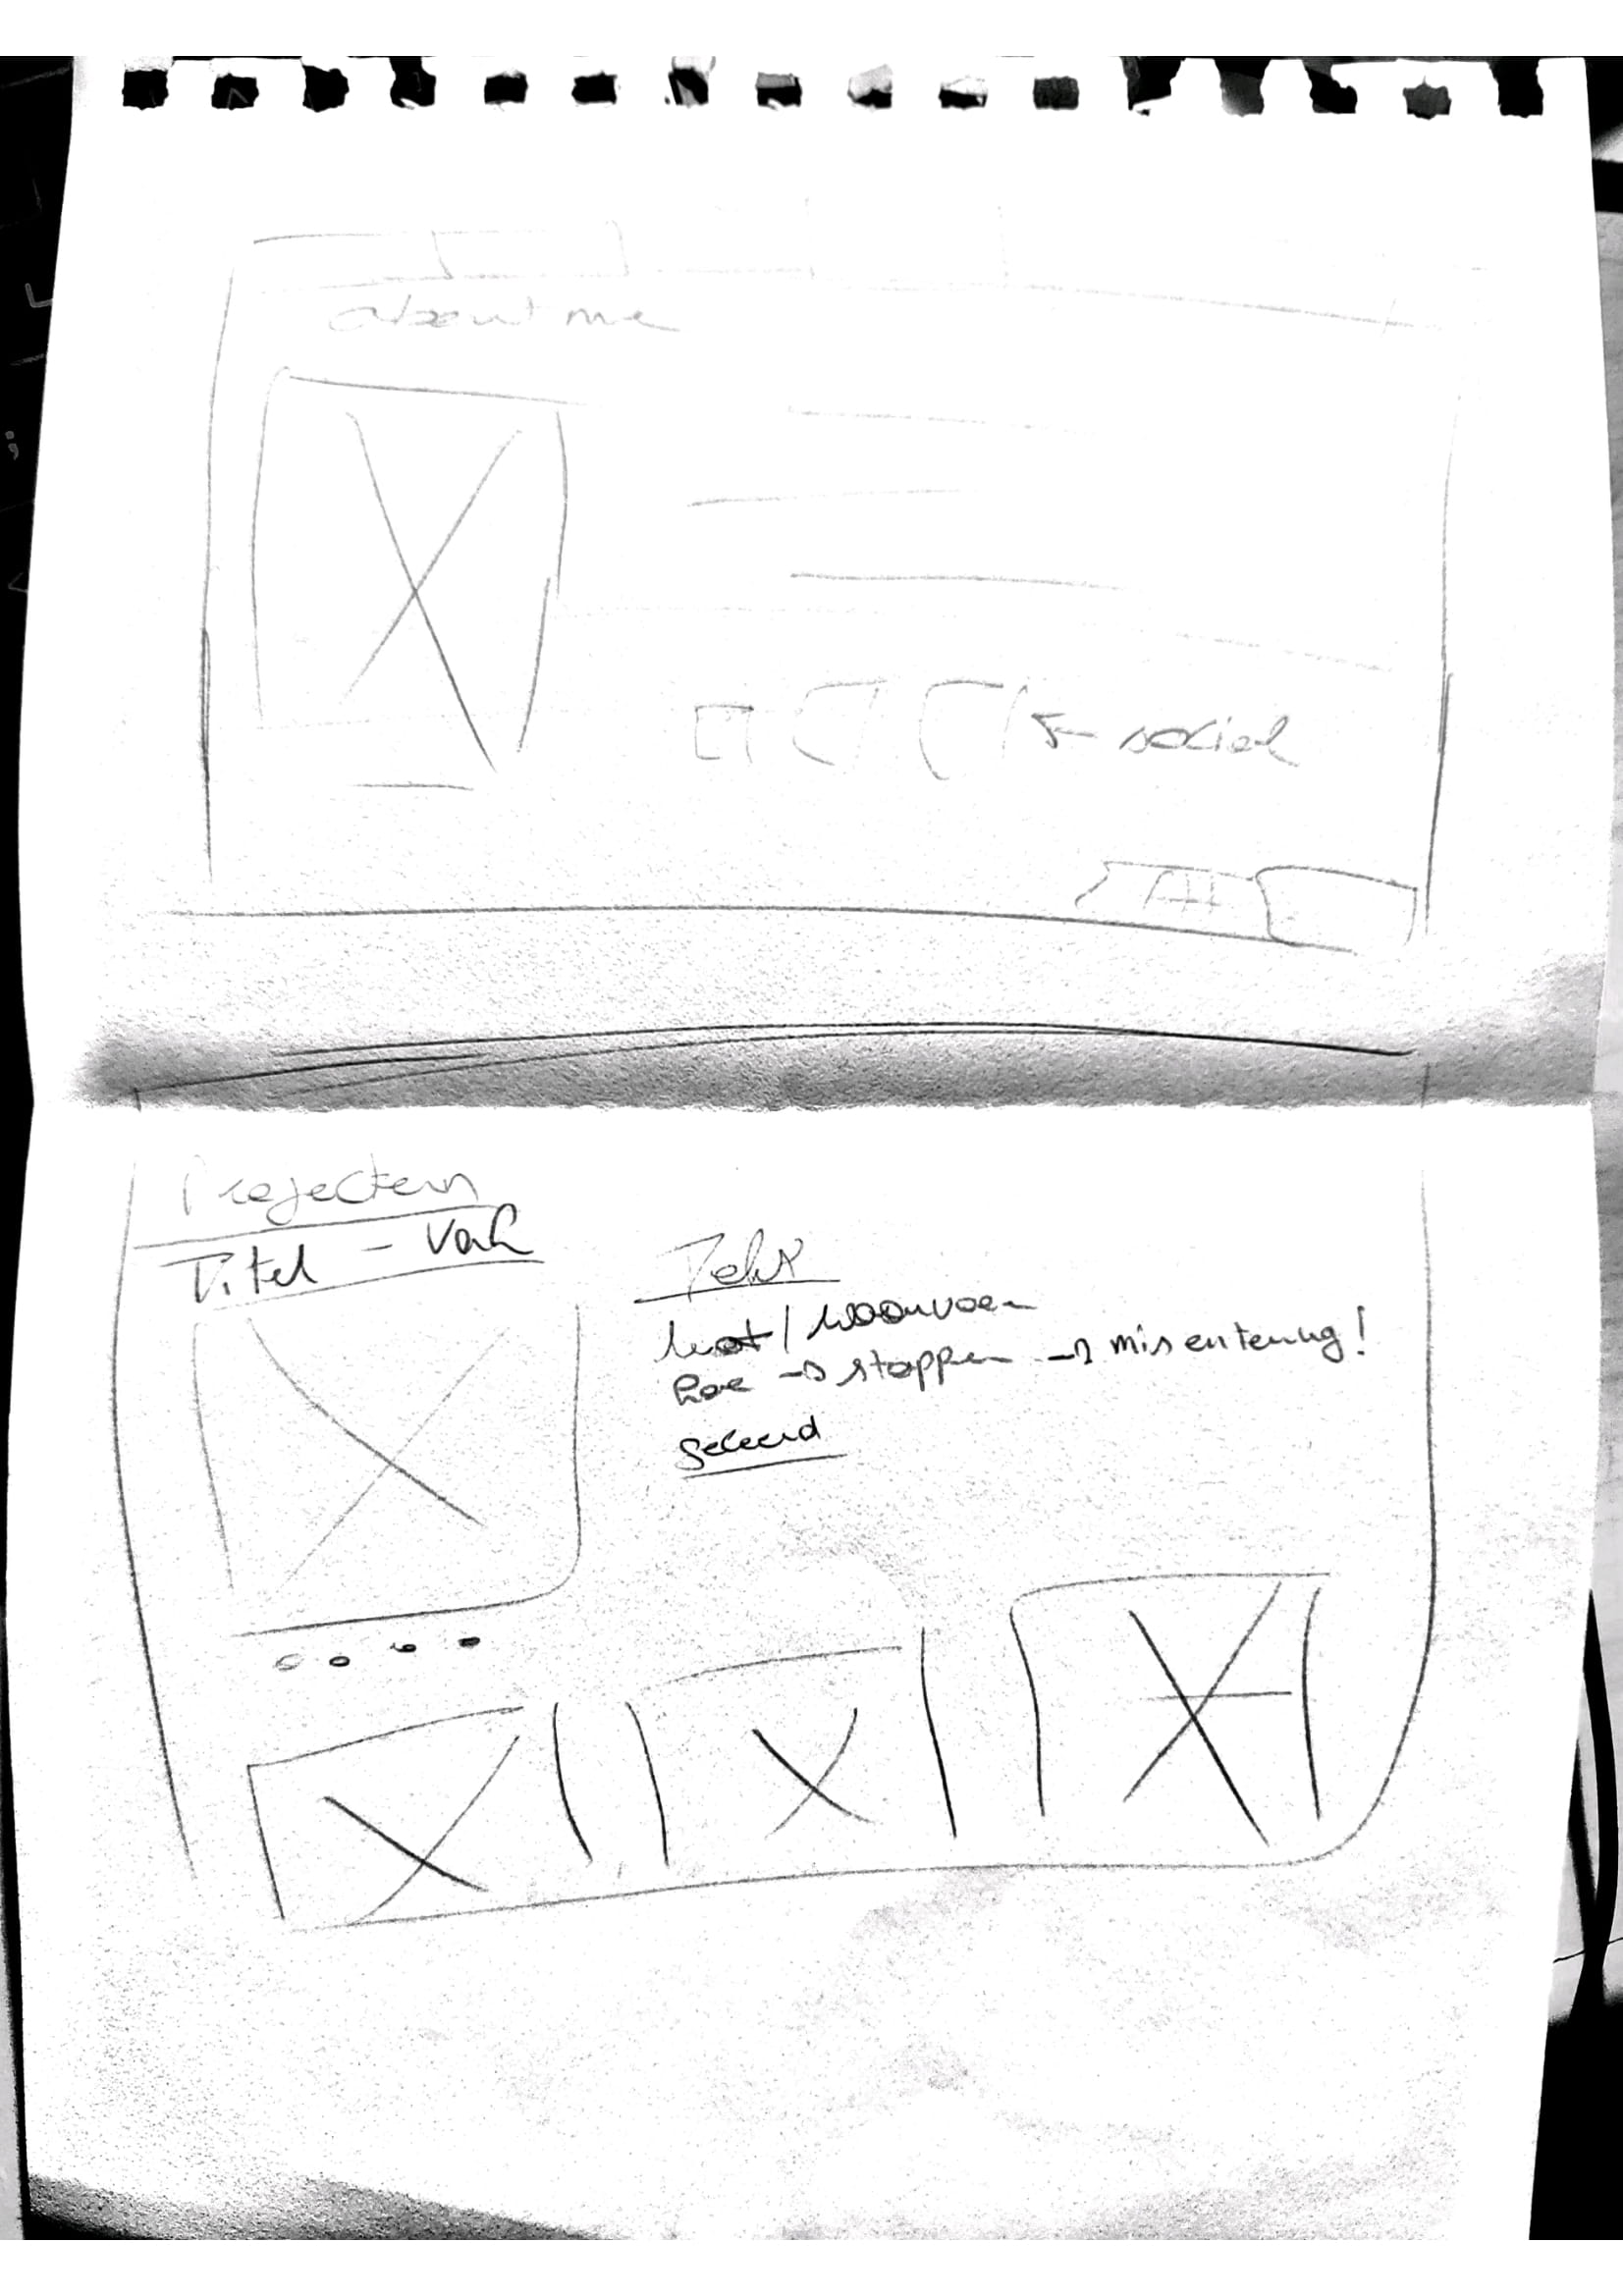 about me
← social
Projecten
Titel - Vak
Tekst
wat / waarvoor
hoe → stappen → misentenug!
geleerd